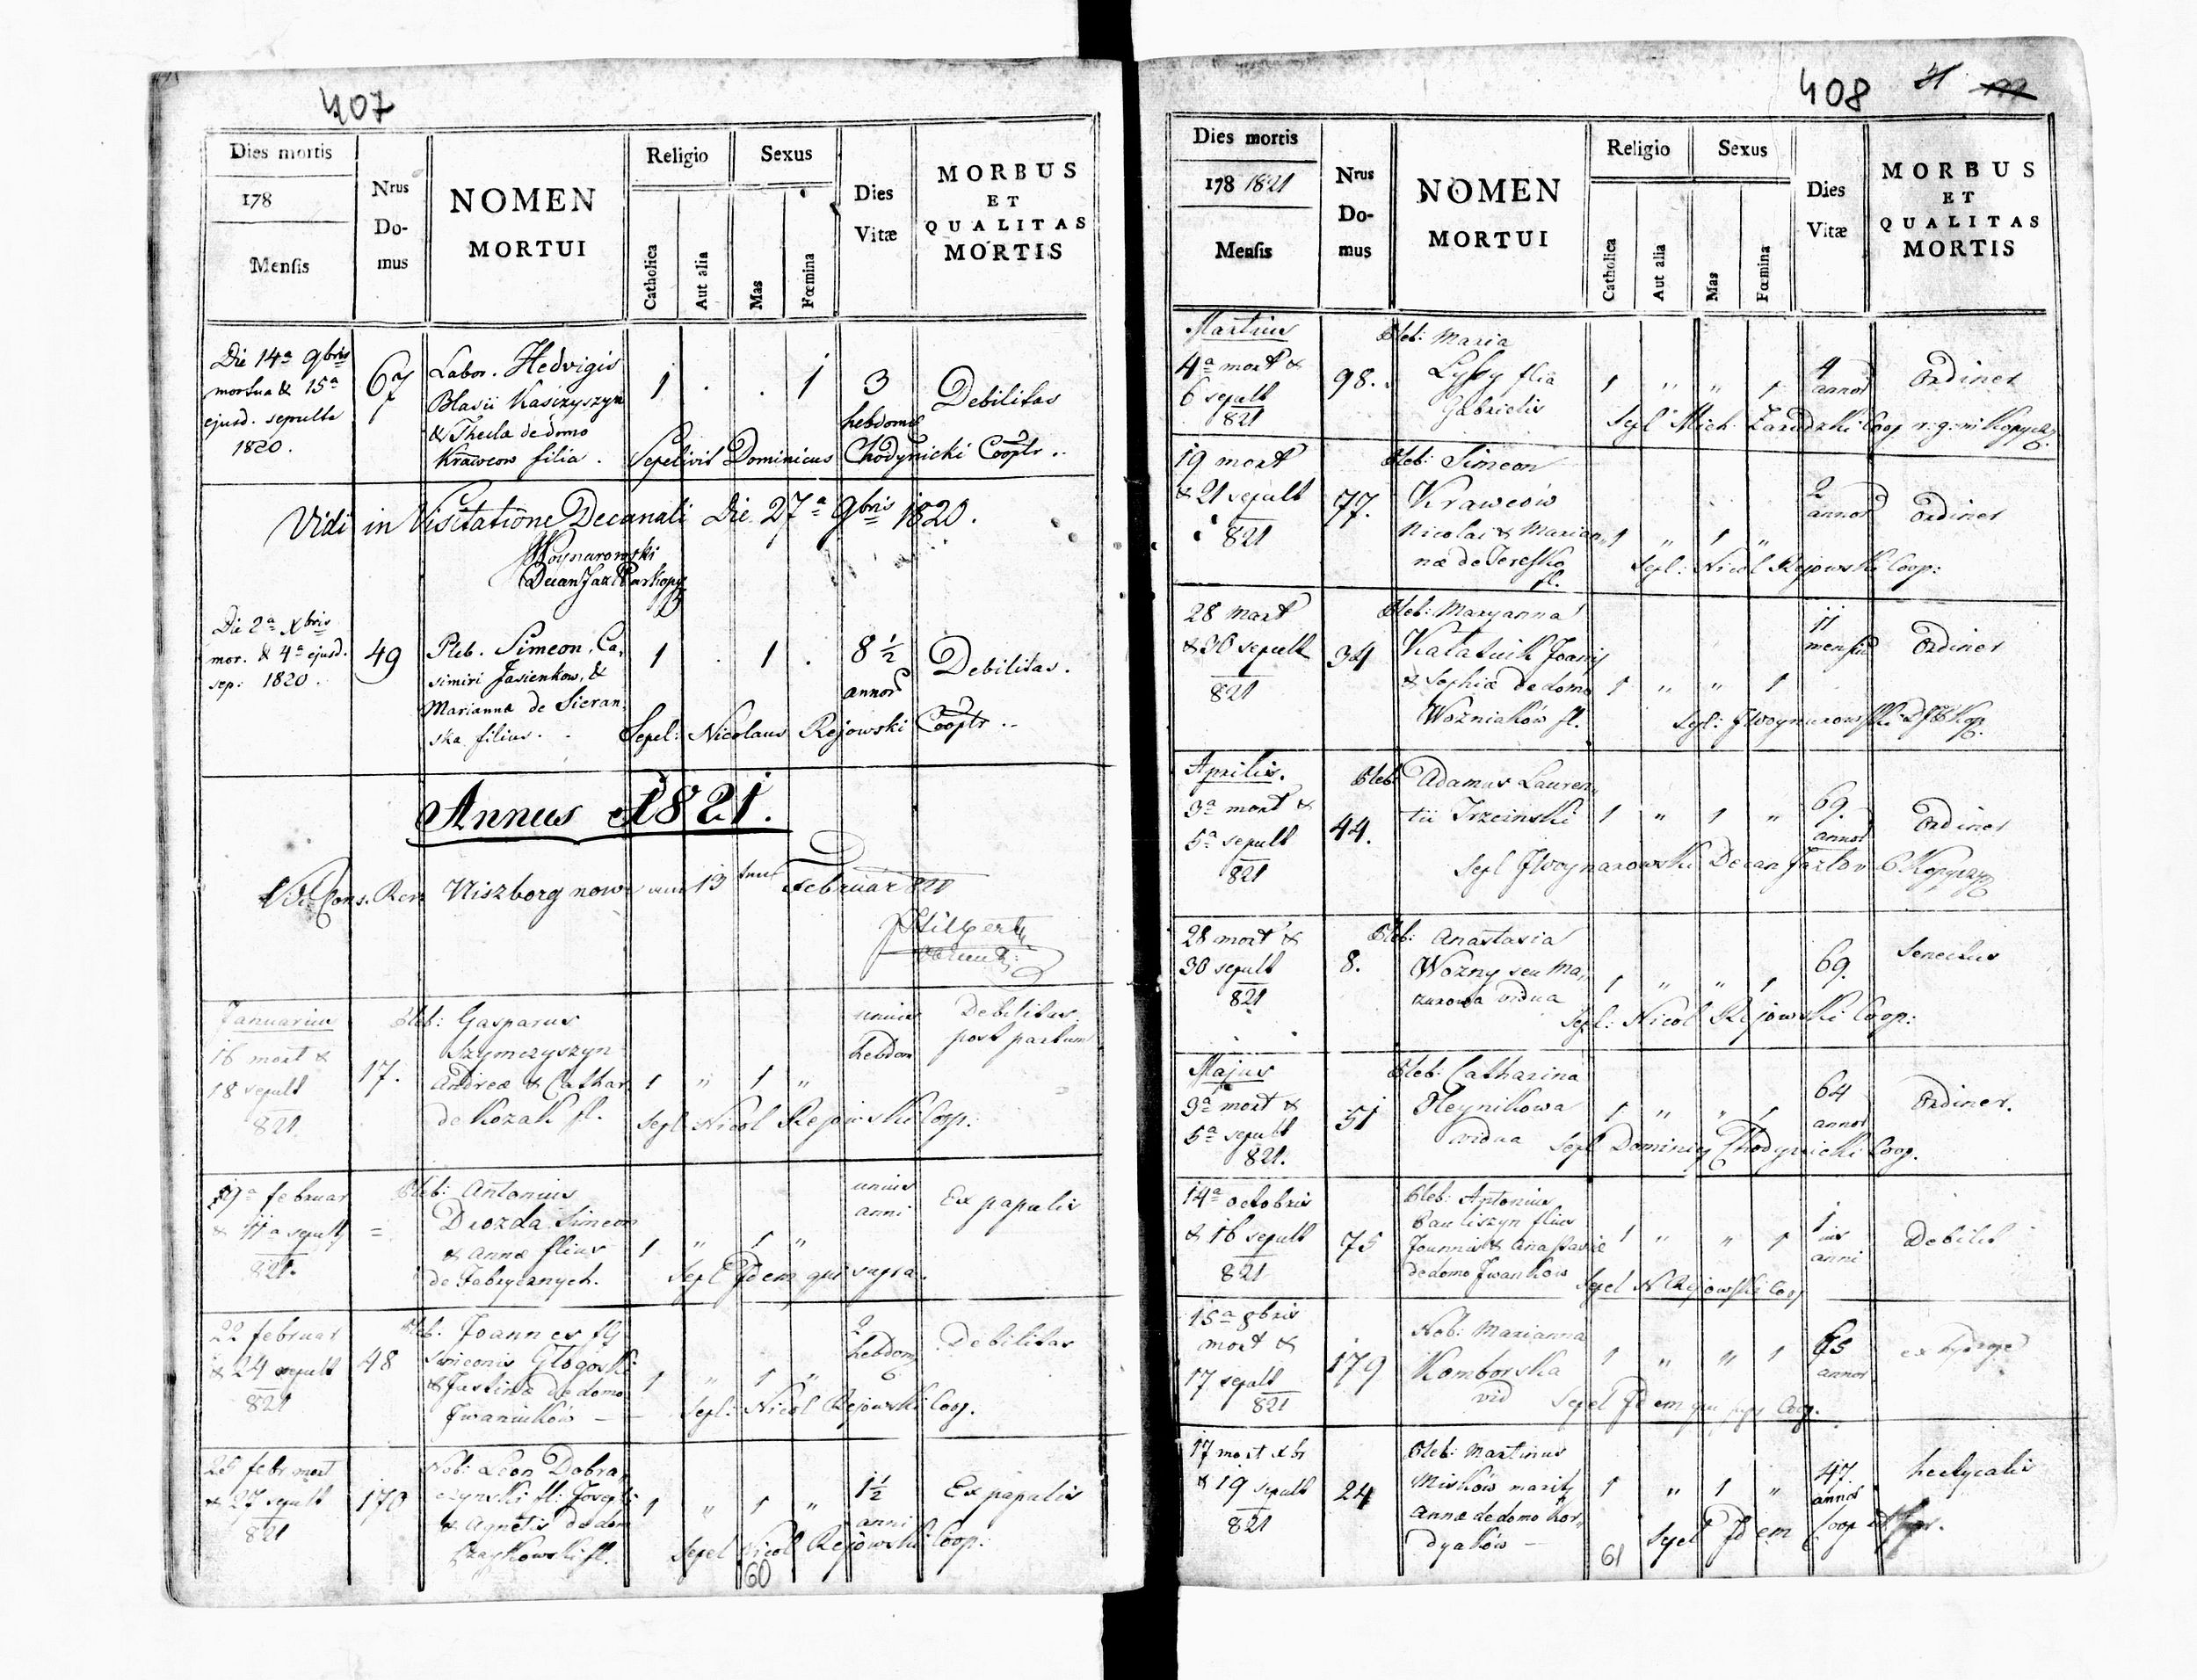 407
Dies mortis
178
Mensis
Nrus
Do-
mus
NOMEN
MORTUI
Religio
Catholica
Aut alia
Sexus
Mas
Fœmina
Dies
Vitæ
MORBUS
ET
QUALITAS
MORTIS
Die 14a 9bris
mortua & 15a
ejusd. sepulta
1820.
67
Labor. Hedvigis
Blasii Kasczyszyn
& Theclæ de domo
Krawcow filia.
1 . . 1
3
hebdom
Debilitas
Sepelivit Dominicus Chodynicki Cooptr..
Vidi in Visitatione Decanali Die 27a 9bris 1820.
Woynarowski
Die 2a Xbris
mor. & 4a ejusd.
sep: 1820.
49
Pleb. Simeon, Ca,
simiri Jasienkow, &
Marianna de Sieran,
ska filius.
1 . 1 .
8 1/2
annor
Debilitas.
Sepel: Nicolaus Rejowski Cooptr..
Annus 1821.
Niszborg nowe 13 Februar 821
Januarius
16 mort &
18 sepult
821.
17.
Pleb: Gasparus
Szymczyszyn
Andreæ & Cathar
de Kozak fl.
1 " 1 "
unius
hebdom
Debilitas
post partum
Sepl Nicol Rejowski Coop:
19a februar
& 11a sepult
821.
=
Pleb: Antonius
Drozda Simeon
& Annæ flius
de Fabrycznych.
1 " 1 "
unius
anni
Ex papulis
Sepl Idem qui supra.
22 februar
& 24 sepult
821
48
Pleb. Joannes fl
Simeonis Glogoski
& Justinæ de domo
Iwaniuków —
1 " 1 "
2
hebdom
Debilitas
Sepl: Nicol Rejowski Coop.
25 febr mort
& 27 sepult
821
170
Nob: Leon Dobra,
czynski fl: Josephi
& Agnetis de dom
Czaykowski fl.
1 " 1 "
1 1/2
anni
Ex papulis
Sepel Nicol Rejowski Coop:
60
408
Dies mortis
178 1821
Mensis
Nrus
Do-
mus
NOMEN
MORTUI
Religio
Catholica
Aut alia
Sexus
Mas
Fœmina
Dies
Vitæ
MORBUS
ET
QUALITAS
MORTIS
Martius
4a mort &
6 sepult
821
98.
Pleb: Maria
Lysy flia
Gabrielis
1 " " 1
4
annor
Ordiner
Sepl Mich: Zarudzki Coop
19 mort
& 21 sepult
821
77.
Pleb: Simeon
Krawców
Nicolai & Marian,
næ de Tereszko
fl.
1 " 1 "
2
annor
Ordiner
Sepl: Nicol Rejowski Coop:
28 Mart
& 30 sepult
821
34
Pleb: Maryanna
Kataluik Joanis
& Sophiæ de domo
Wozniaków fl.
1 " " 1
11
mensiu
Ordiner
Sepl: J Woynarowski
Aprilis.
3a mort &
5a sepult
821
44.
Pleb: Adamus Lauren,
tii Trzcinski
1 " 1 "
69.
annor
Ordiner
Sepl J Woynarowski Decan Jazlov
28 mort &
30 sepult
821
8.
Pleb: Anastasia
Wozny seu Ma,
zurowa vidua
1 " " 1
69.
Senectus
Sepl: Nicol Rejowski Coop:
Majus
3a mort &
5a sepult
821.
51
Pleb: Catharina
Oleynikowa
vidua
1 " " 1
64
annor
Ordiner.
Sepl Dominicq Chodynicki Coop.
14a octobris
& 16 sepult
821
75
Pleb: Antonius
Pauliszyn flius
Joannis & Anastasiæ
de domo Iwanków
1 " " 1
1
ius
anni
Debilit
Sepel N Rejowski Coop
15a 9bris
mort &
17 sepult
821
179
Nob: Marianna
Komborska
vid
1 " " 1
65
annor
Sepel Idem qui Coop.
17 mort Xbr
& 19 sepult
821
24
Pleb: Martinus
Misków marit
Annæ de domo Kor,
dyaków —
1 " 1 "
47.
annor
hectycalis
Sepel Idem Coop
61